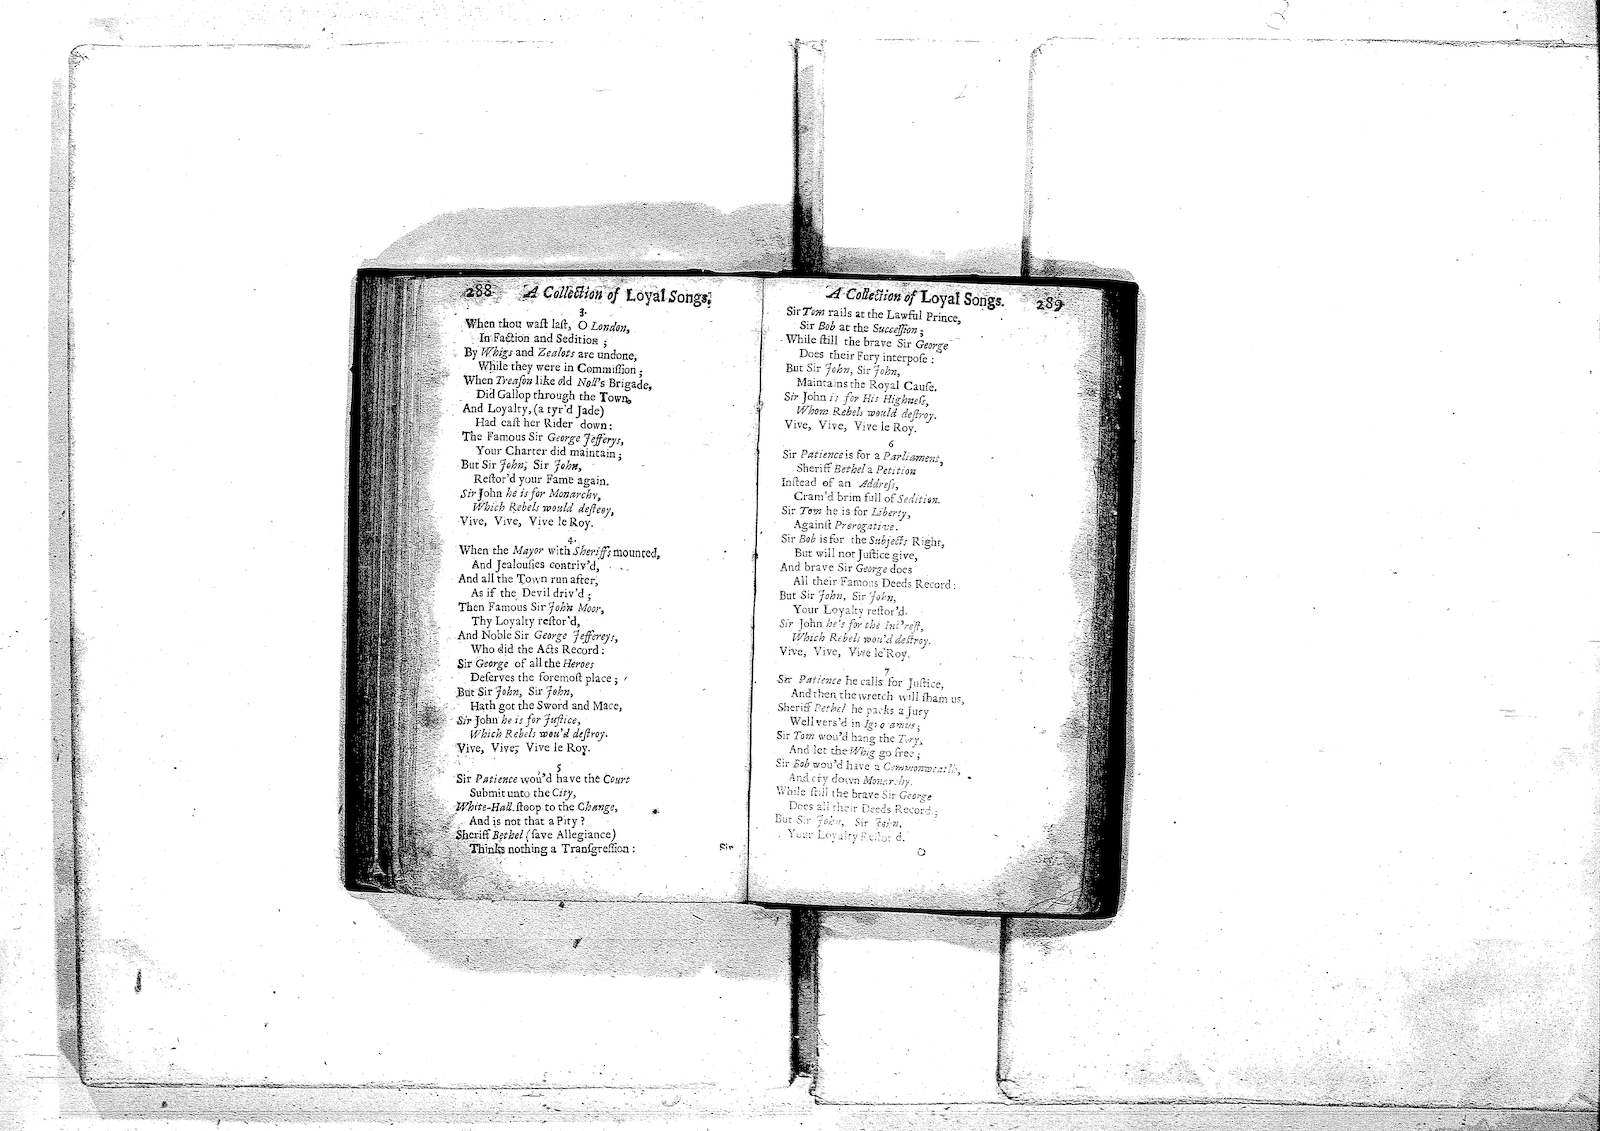 288 A Collection of Loyal Songs.
3.
When thou waſt laſt, O London,
In Faction and Sedition ;
By Whigs and Zealots are undone,
While they were in Commiſſion ;
When Treaſon like old Noll's Brigade,
Did Gallop through the Town,
And Loyalty, (a tyr'd Jade)
Had caſt her Rider down :
The Famous Sir George Jefferys,
Your Charter did maintain ;
But Sir John, Sir John,
Reſtor'd your Fame again.
Sir John he is for Monarchy,
Which Rebels would deſtroy,
Vive, Vive, Vive le Roy.
4.
When the Mayor with Sheriffs mounted,
And Jealouſies contriv'd,
And all the Town run after,
As if the Devil driv'd ;
Then Famous Sir John Moor,
Thy Loyalty reſtor'd,
And Noble Sir George Jeffereys,
Who did the Acts Record :
Sir George of all the Heroes
Deſerves the foremoſt place ;
But Sir John, Sir John,
Hath got the Sword and Mace,
Sir John he is for Juſtice,
Which Rebels wou'd deſtroy.
Vive, Vive, Vive le Roy.
5
Sir Patience wou'd have the Court
Submit unto the City,
White-Hall ſtoop to the Change,
And is not that a Pity ?
Sheriff Bethel (ſave Allegiance)
Thinks nothing a Tranſgreſſion :
Sir
A Collection of Loyal Songs. 289
Sir Tom rails at the Lawful Prince,
Sir Bob at the Succeſſion ;
While ſtill the brave Sir George
Does their Fury interpoſe :
But Sir John, Sir John,
Maintains the Royal Cauſe.
Sir John is for His Highneſs,
Whom Rebels would deſtroy.
Vive, Vive, Vive le Roy.
6
Sir Patience is for a Parliament,
Sheriff Bethel a Petition
Inſtead of an Addreſs,
Cram'd brim full of Sedition.
Sir Tom he is for Liberty,
Againſt Prerogative.
Sir Bob is for the Subjects Right,
But will not Juſtice give,
And brave Sir George does
All their Famous Deeds Record :
But Sir John, Sir John,
Your Loyalty reſtor'd.
Sir John he's for the Int'reſt,
Which Rebels wou'd deſtroy.
Vive, Vive, Vive le Roy.
7
Sir Patience he calls for Juſtice,
And then the wretch will ſham us,
Sheriff Bethel he packs a Jury
Well vers'd in Ignoramus ;
Sir Tom wou'd hang the Tory,
And let the Whig go free ;
Sir Bob wou'd have a Commonwealth,
And cry down Monarchy.
While ſtill the brave Sir George
Does all their Deeds Record ;
But Sir John, Sir John,
Your Loyalty Reſtor'd.
O